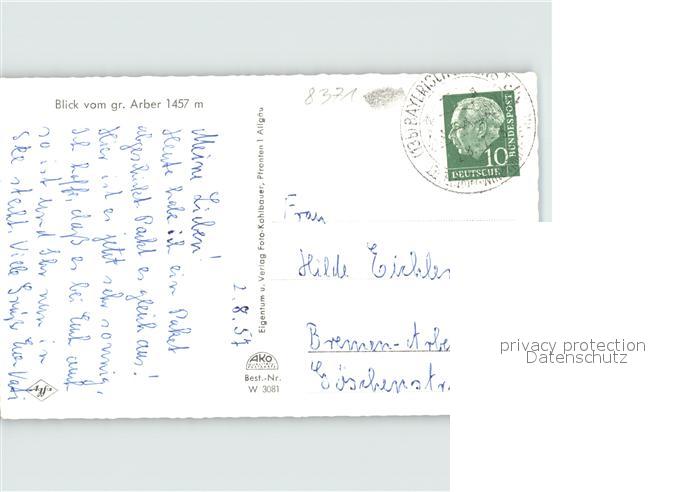 Blick vom gr. Arber 1457 m
8371
DEUTSCHE
BUNDESPOST
10
Meine Lieben!
Heute habe ich ein Paket
abgeschickt. Packt es gleich aus!
Hier ist es jetzt sehr sonnig,
Ich hoffe, daß es bei Euch auch
so ist und Ihr nun in
See stecht. Viele Grüße Eure
2.8.57
Eigentum u. Verlag Foto-Kahlbauer, Pfronten i Allgäu
AKO
Best.-Nr.
W 3081
Frau
Hilde
Bremen-Arbe
Göschenstr.
privacy protection
Datenschutz